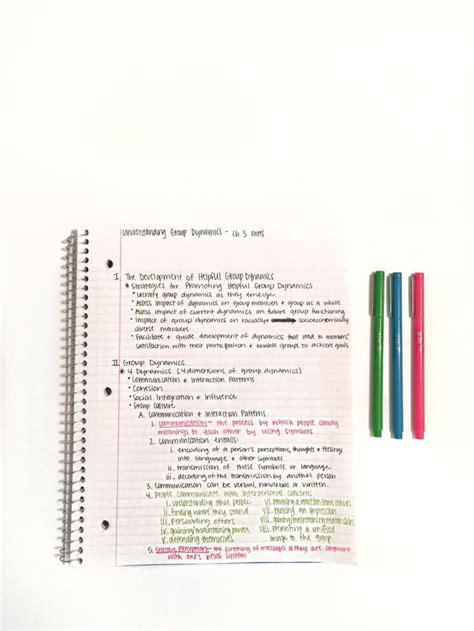 Understanding Group Dynamics - Ch. 3 notes
I. The Development of Helpful Group Dynamics
* Strategies for Promoting Helpful Group Dynamics
• Identify group dynamics as they emerge
• Assess impact of group dynamics on group members + group as a whole
• Assess impact of current dynamics on future group functioning
• Impact of group dynamics on racially + socioeconomically
diverse members
• Facilitate + guide development of dynamics that lead to members'
satisfaction with their participation + enable groups to achieve goals
II. Group Dynamics
* 4 Dynamics (4 dimensions of group dynamics)
• Communication + Interaction Patterns
• Cohesion
• Social Integration + Influence
• Group Culture
A. Communication + Interaction Patterns
1. Communication - the process by which people convey
meanings to each other by using symbols
2. Communication entails:
i. encoding of a person's perceptions, thoughts + feelings
into language + other symbols
ii. transmission of these symbols or language
iii. decoding of the transmission by another person
3. Communication can be verbal, nonverbal or written
4. People communicate with interpersonal concerns
i. understanding other people
ii. finding where they stand
iii. persuading others
iv. gaining/maintaining power
v. defending themselves
vi. provoking a reaction from others
vii. making an impression
viii. gaining/maintaining relationships
viii. presenting a unified
image to the group
5. Selective Perception - the screening of messages so they are congruent
with one's belief system